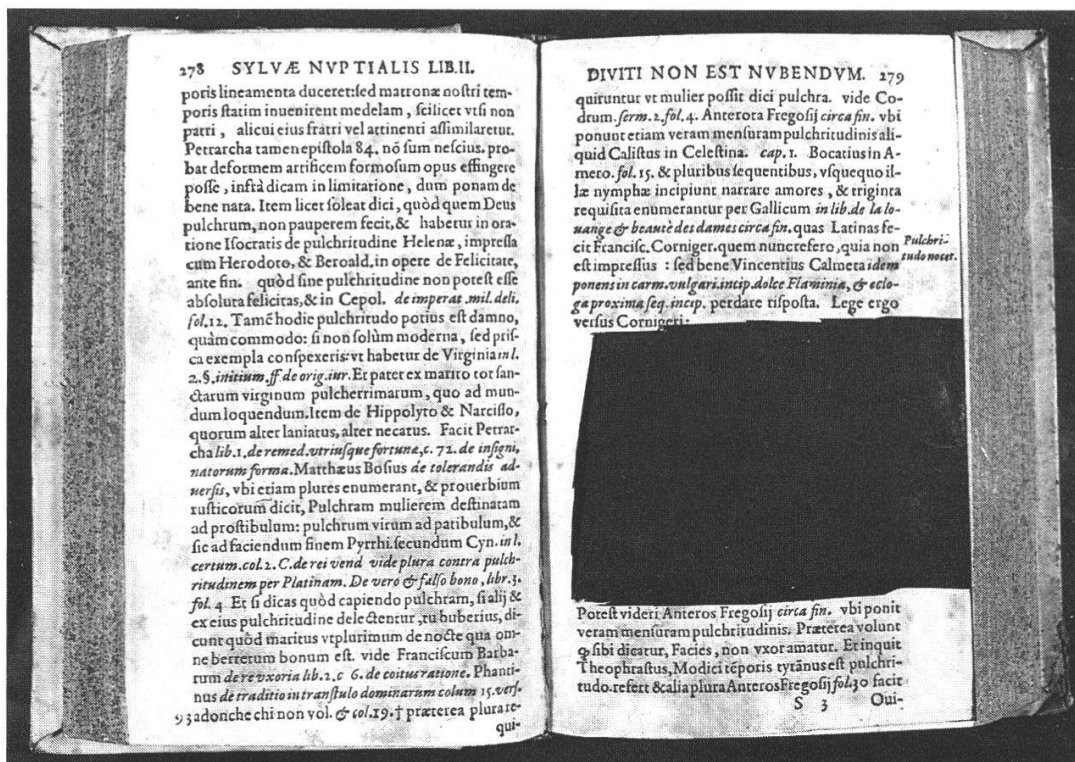 278 SYLVÆ NVPTIALIS LIB.II.
poris lineamenta duceret:sed matronæ nostri tem-
poris statim inuenirent medelam, scilicet vt si non
patri, alicui eius fratri vel attinenti assimilaretur.
Petrarcha tamen epistola 84. nō sum nescius. pro-
bat deformem artificem formosum opus effingere
posse, infrà dicam in limitatione, dum ponam de
bene nata. Item licet soleat dici, quòd quem Deus
pulchrum, non pauperem fecit, & habetur in ora-
tione Isocratis de pulchritudine Helenæ, impressa
cum Herodoto, & Beroald. in opere de Felicitate,
ante fin. quòd sine pulchritudine non potest esse
absoluta felicitas, & in Cepol. de imperat. mil. deli.
fol.12. Tamē hodie pulchritudo potius est damno,
quàm commodo: si non solùm moderna, sed pris-
ca exempla conspexeris: vt habetur de Virginia in l.
2.§.initium.ff.de orig.iur. Et pater ex marito tot san-
ctarum virginum pulcherrimarum, quo ad mun-
dum loquendum. Item de Hippolyto & Narcisso,
quorum alter laniatus, alter necatus. Facit Petrar-
cha lib.1.de remed.vtriusque fortunæ, c. 72. de insigni,
natorum forma. Matthæus Bosius de tolerandis ad-
uersis, vbi etiam plures enumerant, & prouerbium
rusticorum dicit, Pulchram mulierem destinatam
ad prostibulum: pulchrum virum ad patibulum, &
sic ad faciendum finem Pyrrhi. secundum Cyn. in l.
certum.col.2. C. de rei vend vide plura contra pulch-
ritudinem per Platinam. De vero & falso bono, libr.3.
fol. 4. Et si dicas quòd capiendo pulchram, si alij &
ex eius pulchritudine delectentur, tu huberius, di-
cunt quòd maritus vt plurimum de nocte qua om-
ne berretum bonum est. vide Franciscum Barba-
rum de re vxoria lib.2.c 6. de coitus ratione. Phanti-
nus de traditio in transtulo dominarum colum 15.vers.
93 adonche chi non vol. & col.19.† præterea plura re-
qui-
DIVITI NON EST NVBENDVM. 279
quiruntur vt mulier possit dici pulchra. vide Co-
drum. serm.2.fol.4. Anterota Fregosij circa fin. vbi
ponunt etiam veram mensuram pulchritudinis ali-
quid Calistus in Celestina. cap.1. Bocatius in A-
meto. fol.15. & pluribus sequentibus, vsquequo il-
læ nymphæ incipiunt narrare amores, & triginta
requisita enumerantur per Gallicum in lib.de la lo-
uange & beautè des dames circa fin. quas Latinas fe-
cit Francisc. Corniger. quem nunc refero, quia non
est impressus : sed bene Vincentius Calmeta idem
ponens in carm.vulgari.incip.dolce Flaminia, & eclo-
ga proxima seq.incip. perdare risposta. Lege ergo
versus Cornigeri:
Pulchri-
tudo nocet.
Potest videri Anteros Fregosij circa fin. vbi ponit
veram mensuram pulchritudinis. Præterea volunt
ꝙ sibi dicatur, Facies, non vxor amatur. Et inquit
Theophrastus, Modici tēporis tyrānus est pulchri-
tudo. refert & alia plura Anteros Fregosij fol.30 facit
S 3 Oui-